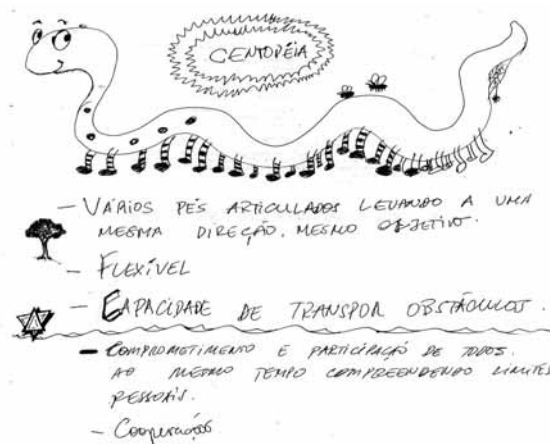 CENTOPÉIA
- VÁRIOS PÉS ARTICULADOS LEVANDO A UMA
MESMA DIREÇÃO. MESMO OBJETIVO.
- FLEXÍVEL
- CAPACIDADE DE TRANSPOR OBSTÁCULOS.
- COMPROMETIMENTO E PARTICIPAÇÃO DE TODOS.
AO MESMO TEMPO COMPREENDENDO LIMITES
PESSOAIS.
- Cooperação